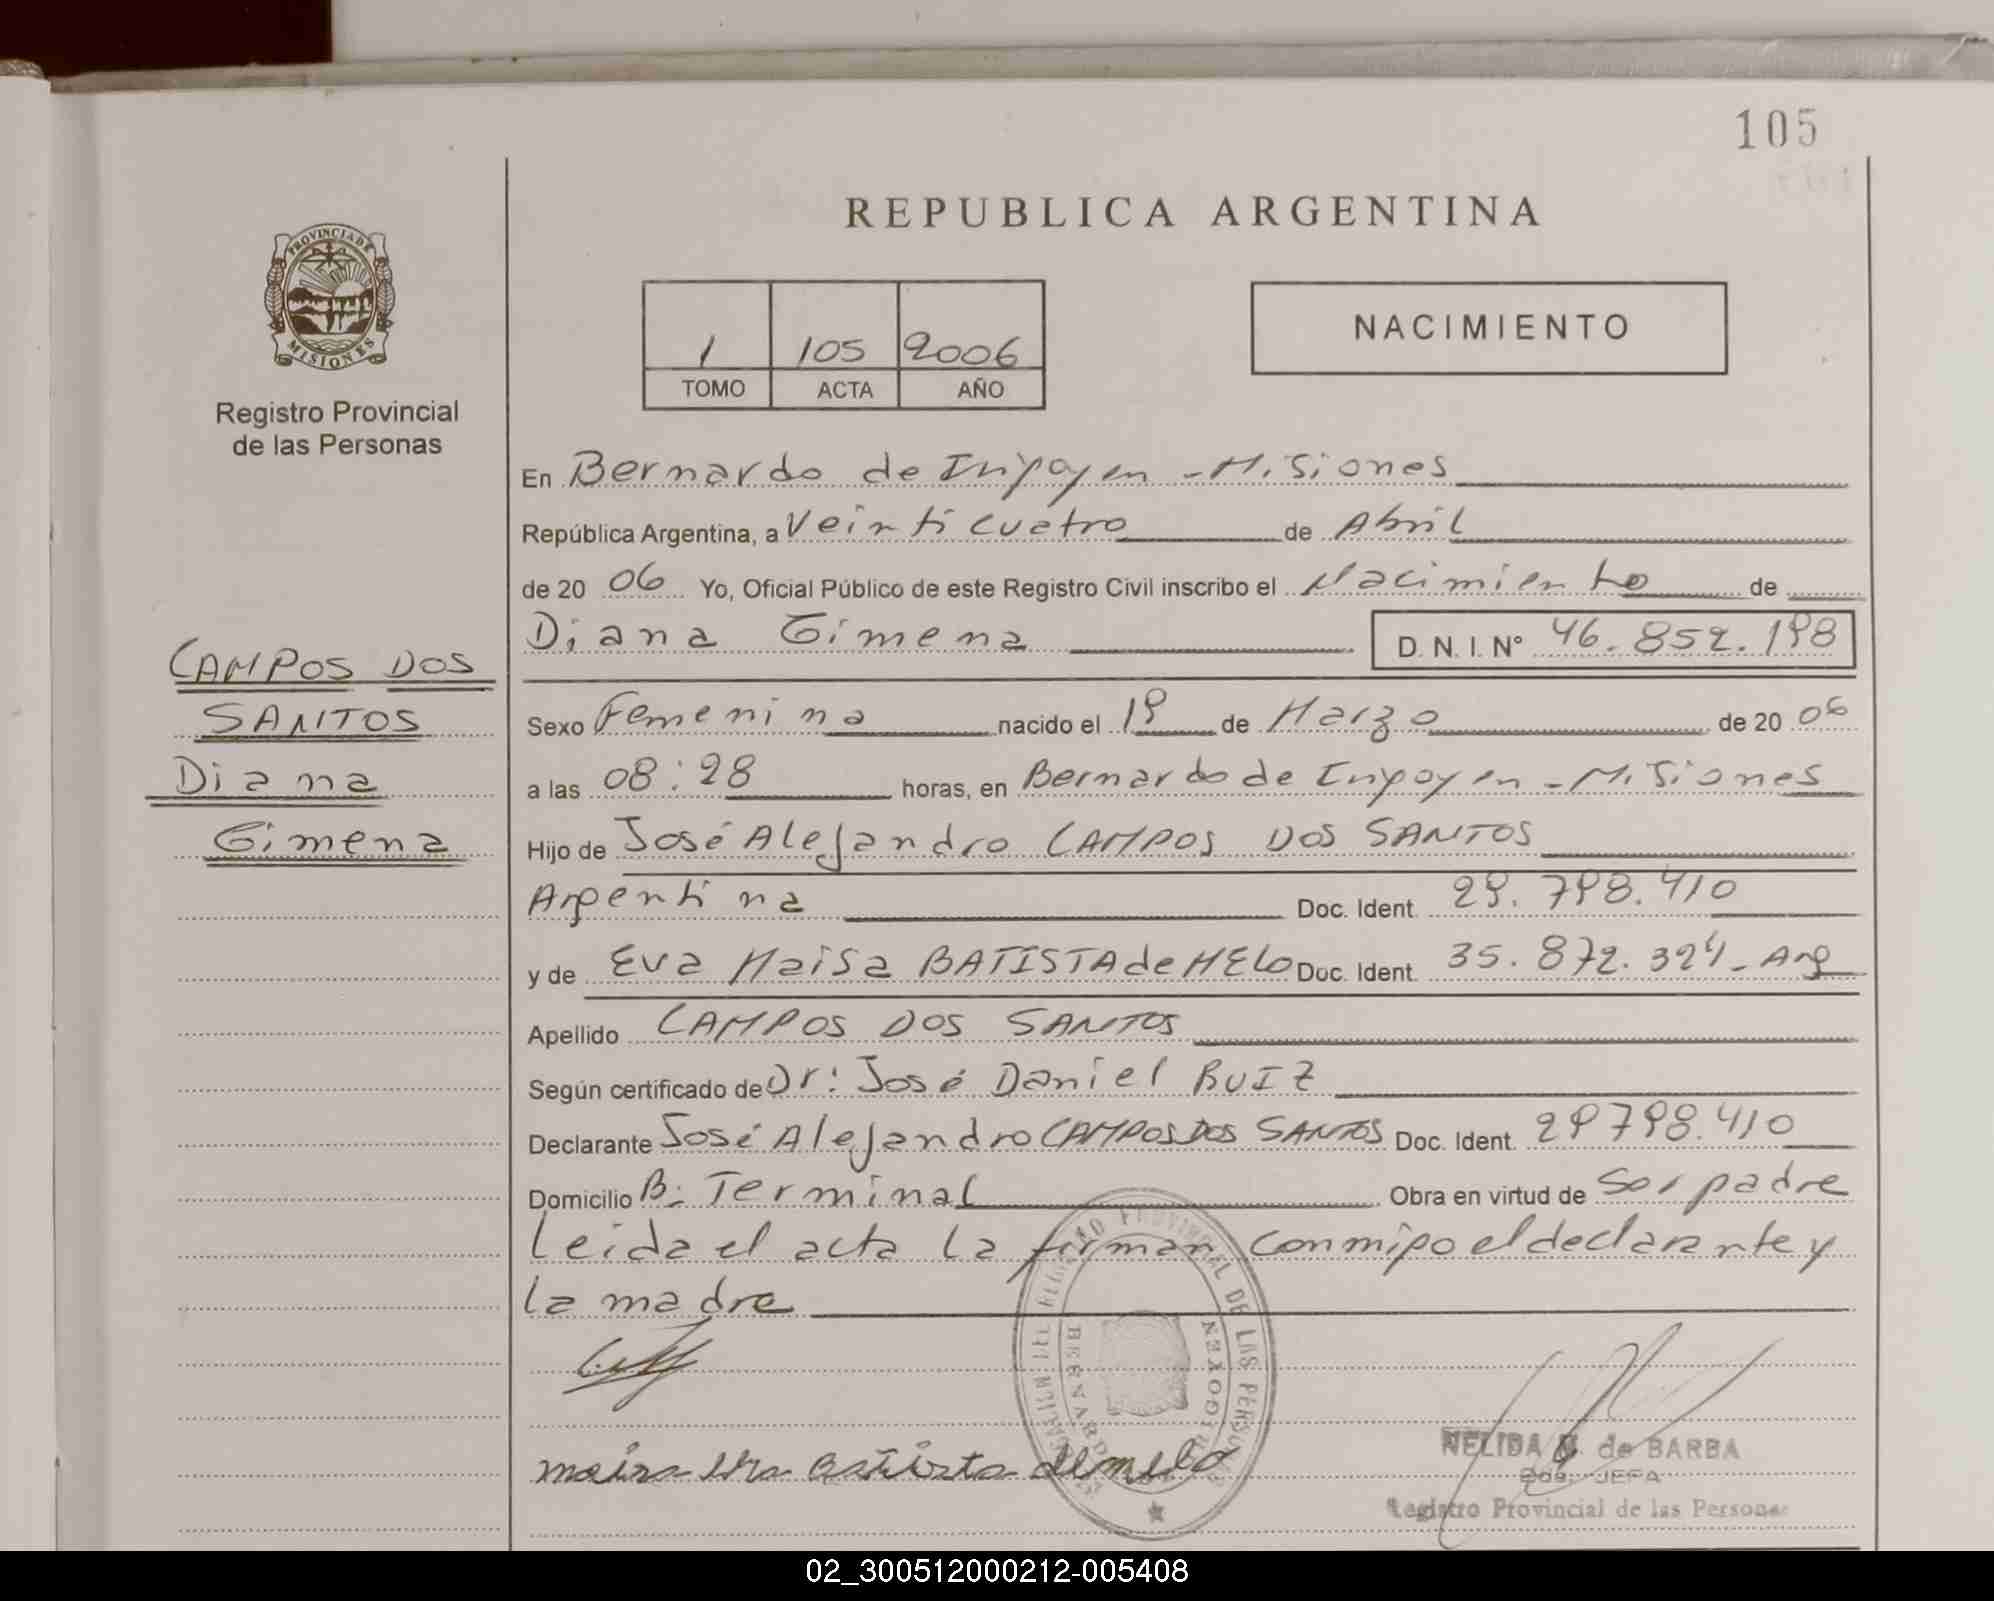 105
REPUBLICA ARGENTINA
PROVINCIA DE
MISIONES
Registro Provincial
de las Personas
1 105 2006
TOMO ACTA AÑO
NACIMIENTO
En Bernardo de Irigoyen - Misiones
República Argentina, a Veinti cuatro de Abril
de 20 06 Yo, Oficial Público de este Registro Civil inscribo el Nacimiento de
Diana Gimena D. N. I. N° 46.852.198
CAMPOS DOS
SANTOS
Diana
Gimena
Sexo Femenina nacido el 19 de Marzo de 20 06
a las 08:28 horas, en Bernardo de Irigoyen - Misiones
Hijo de José Alejandro CAMPOS DOS SANTOS
Argentina Doc. Ident. 29.798.410
y de Eva Maisa BATISTA de MELO Doc. Ident. 35.872.324 - Arg
Apellido CAMPOS DOS SANTOS
Según certificado de Dr: José Daniel RUIZ
Declarante José Alejandro CAMPOS DOS SANTOS Doc. Ident. 29798.410
Domicilio B: Terminal Obra en virtud de Ser padre
Leida el acta la firman conmigo el declarante y
la madre
REGISTRO PROVINCIAL DE LAS PERSONAS
BERNARDO DE IRIGOYEN
NELIDA de BARBA
JEFA
Registro Provincial de las Personas
02_300512000212-005408